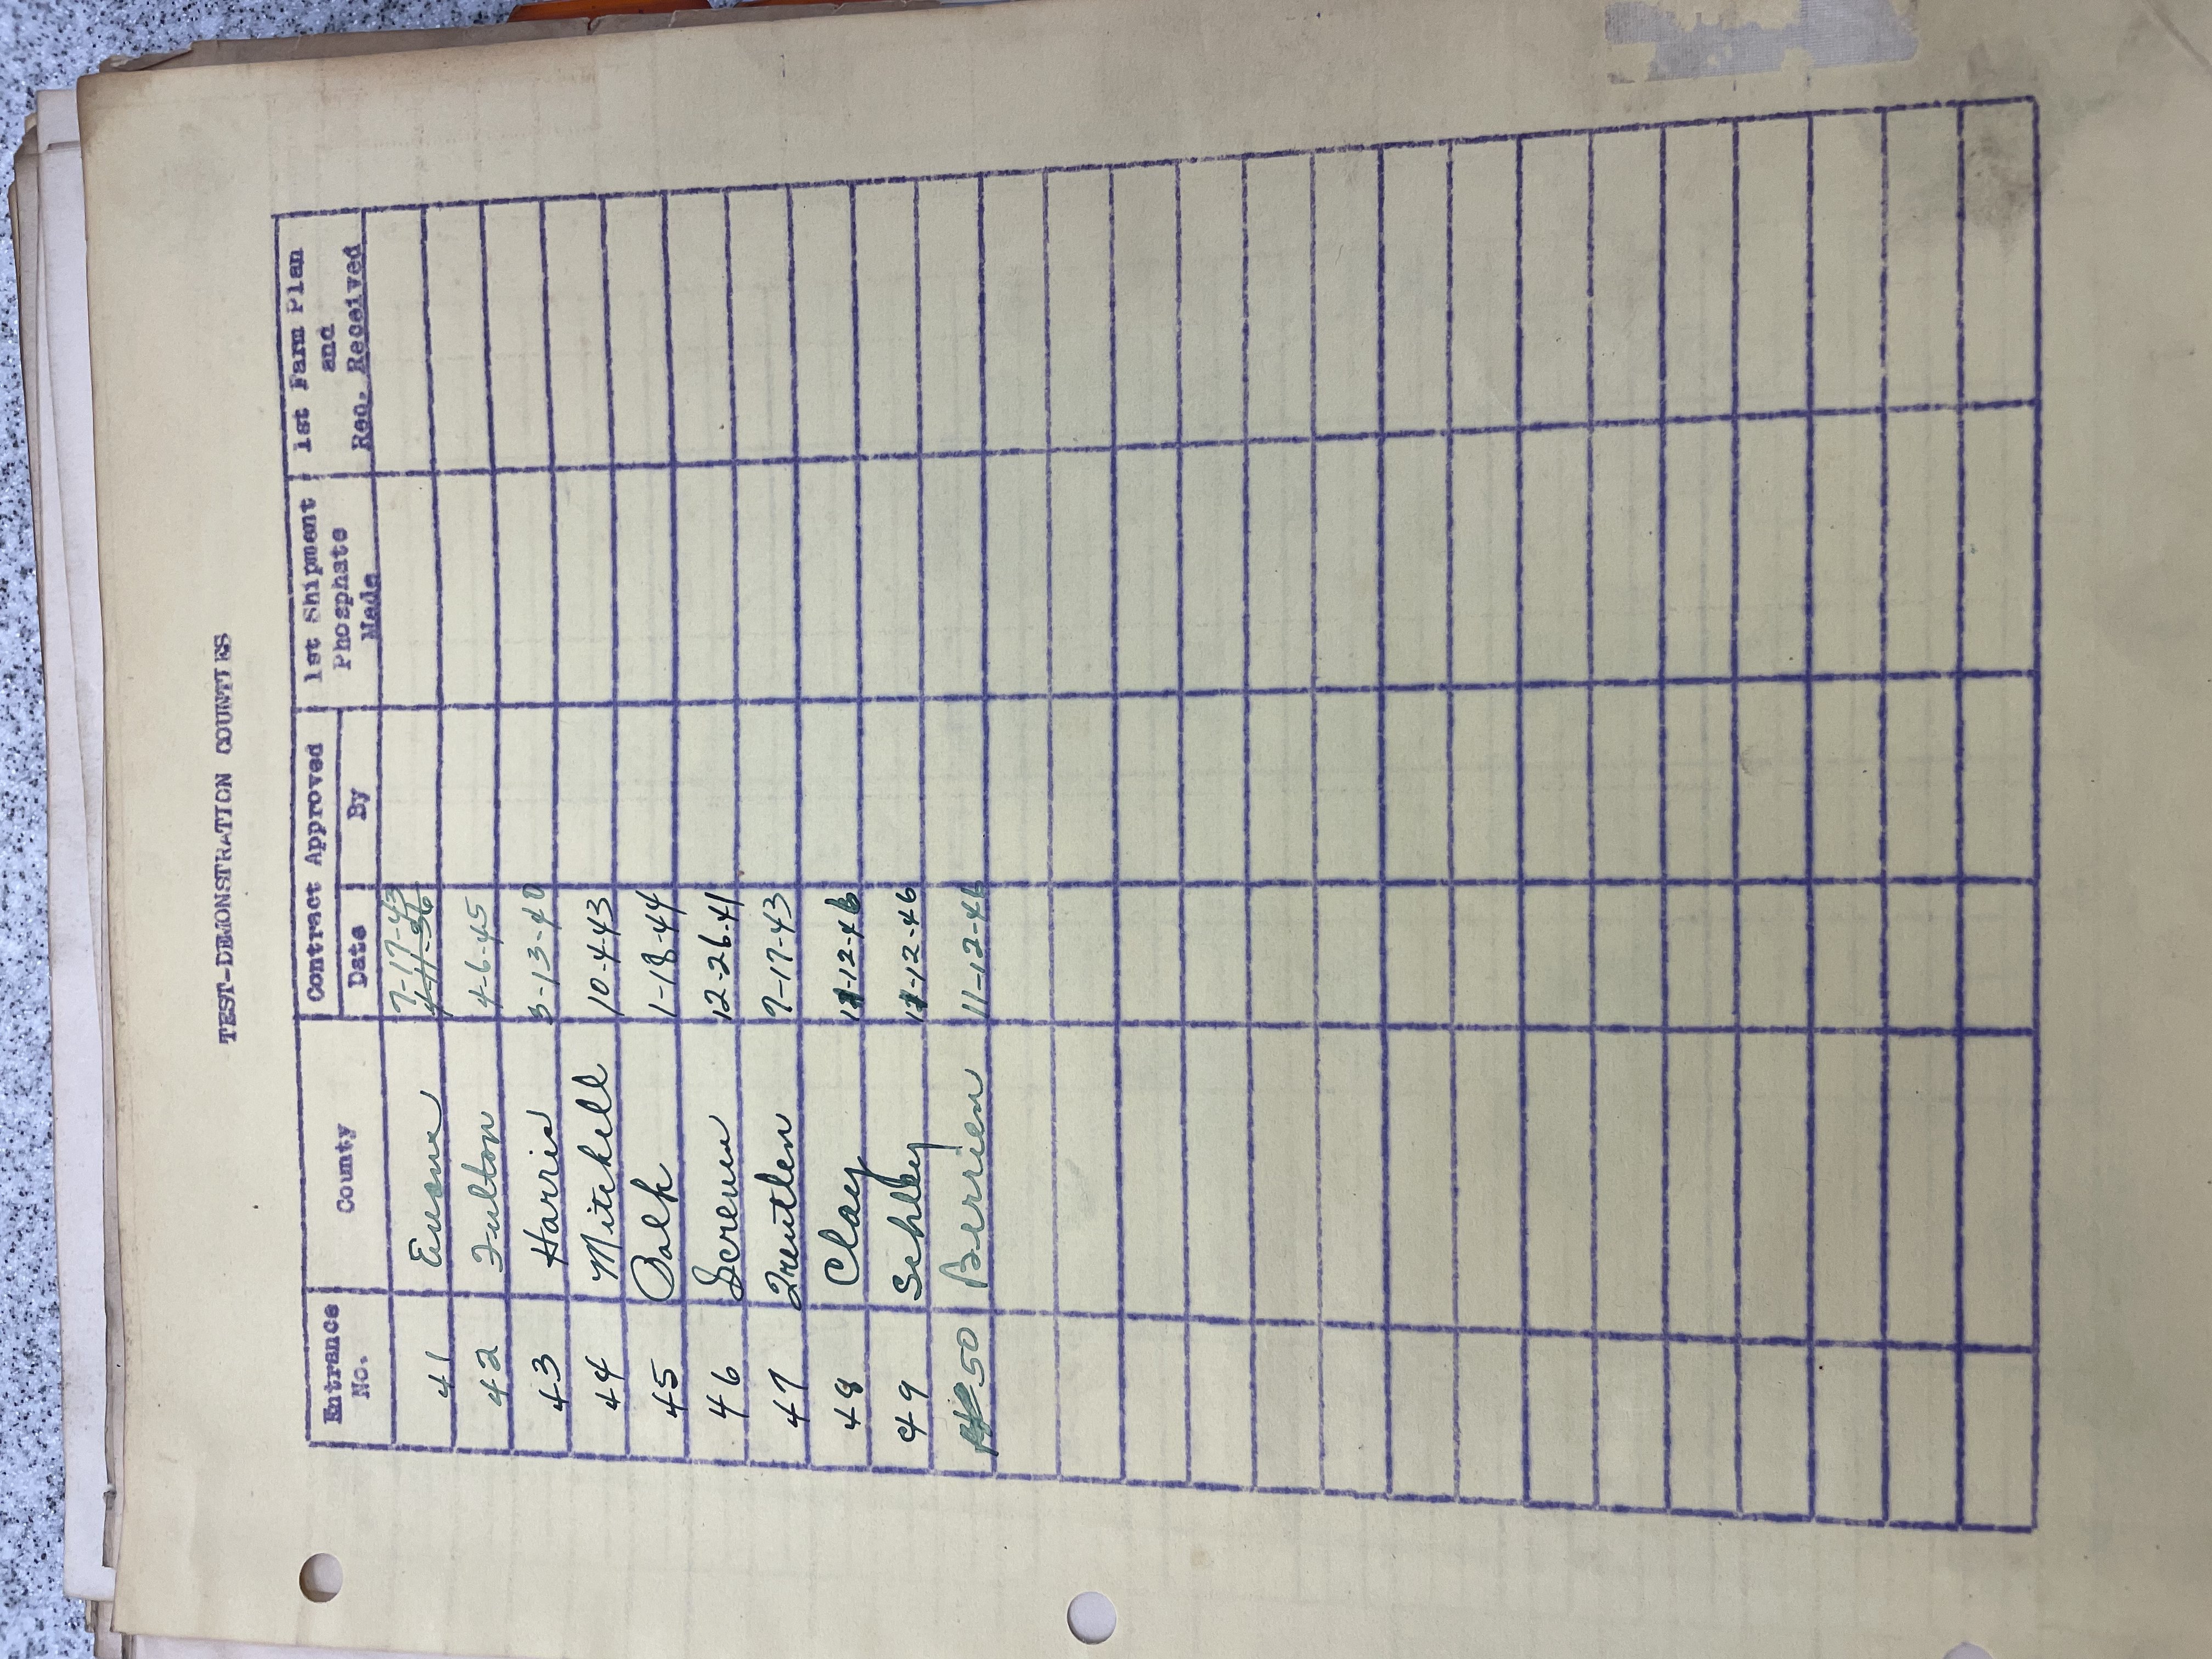 TEST-DEMONSTRATION COUNTIES
Entrance No. County Contract Approved 1st Shipment Phosphate Made 1st Farm Plan and Req. Received
Date By
7-17-43
41 Evans 4-11-36
42 Fulton 4-6-45
43 Harris 3-13-40
44 Mitchell 10-4-43
45 Polk 1-18-44
46 Screven 12-26-41
47 Treutlen 7-17-43
48 Clay 11-12-46
49 Schley 11-12-46
50 Berrien 11-12-46